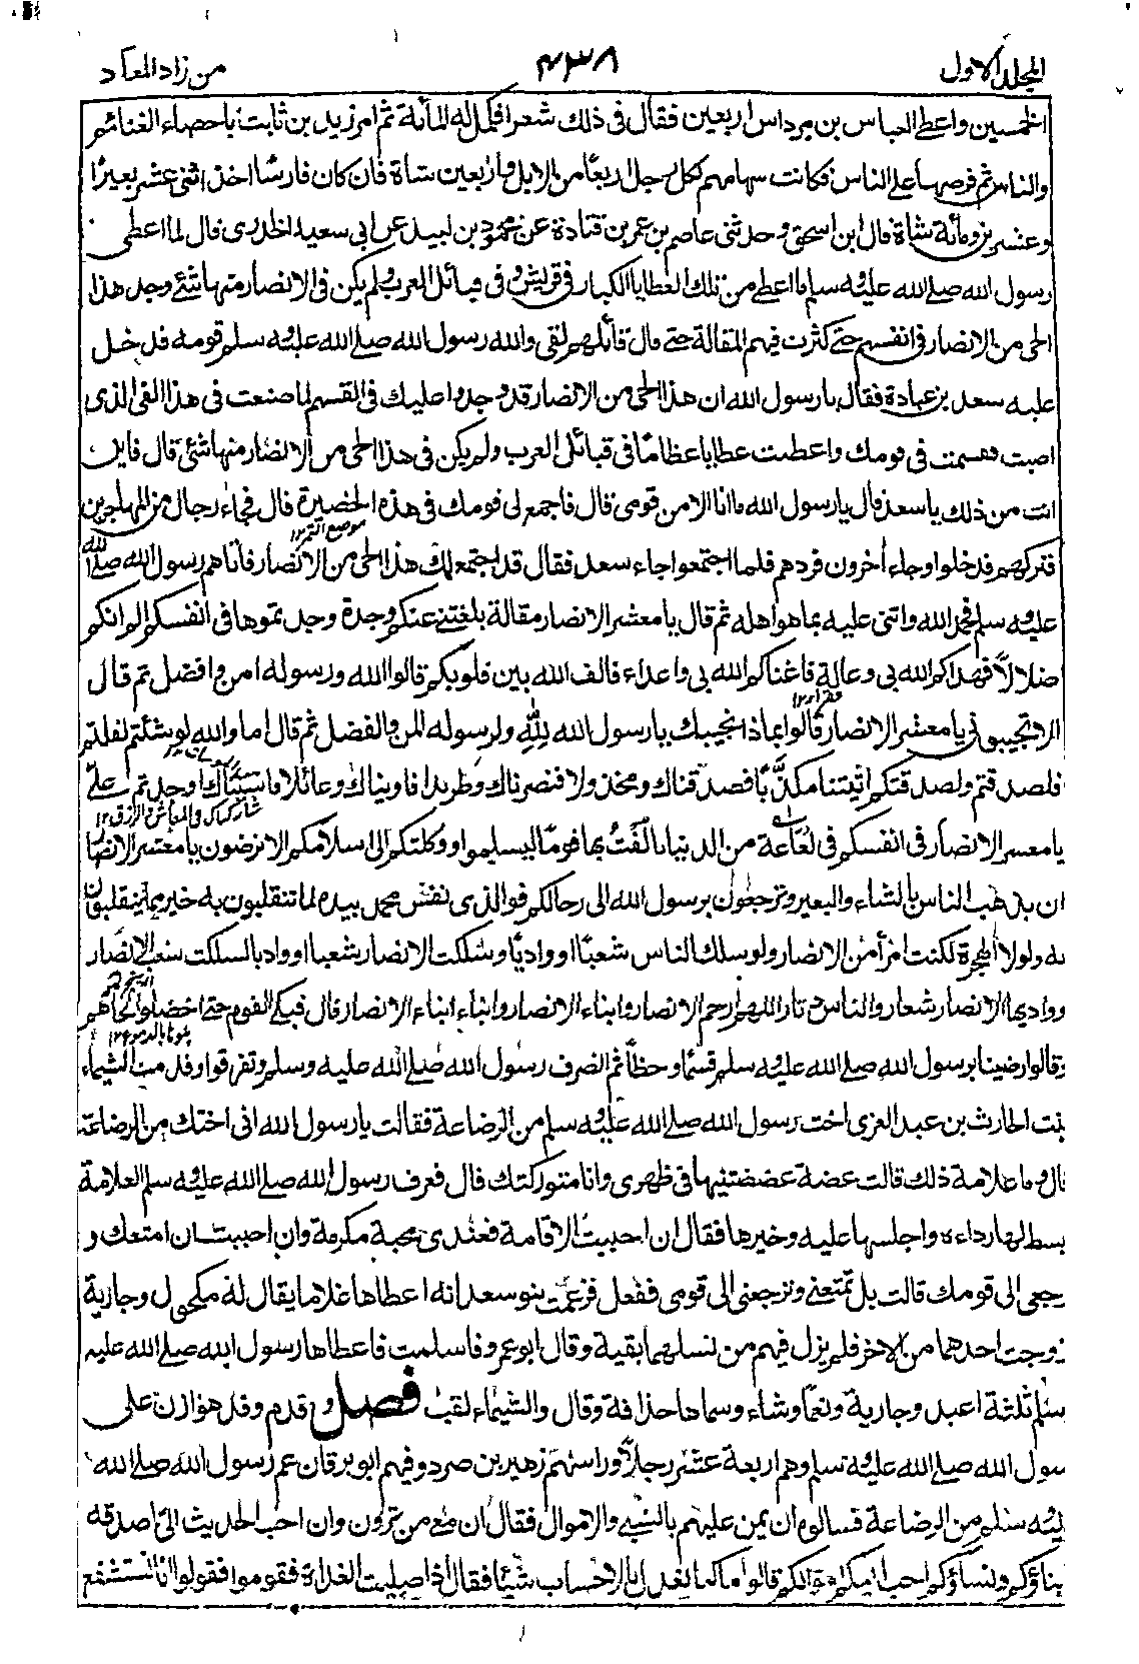 المجلد الاول
٤٣٨
من زاد المعاد
الخمسين واعطى العباس بن مرداس اربعين فقال فى ذلك شعرا فكمل له المأبة ثم امر زيد بن ثابت باحصاء الغنائم
والناس ثم فرضها على الناس فكانت سهامهم لكل رجل اربعًا من الابل واربعين شاة فان كان فارسًا اخذ اثنى عشر بعيرًا
وعشرين ومأئة شاة قال ابن اسحق وحدثنى عاصم بن عمر بن قتادة عن محمود بن لبيد عن ابى سعيد الخدرى قال لما اعطى
رسول الله صلے الله عليه وسلم ما اعطى من تلك العطايا الكبار فى قريش وفى قبائل العرب ولم يكن فى الانصار منها شئ وجد هذا
الحى من الانصار فى انفسهم حتى كثرت فيهم المقالة حتى قال قائلهم لقى والله رسول الله صلے الله عليه وسلم قومه فدخل
عليه سعد بن عبادة فقال يا رسول الله ان هذا الحى من الانصار قد وجدوا عليك فى القسم لما صنعت فى هذا الفى الذى
اصبت قسمت فى قومك واعطيت عطايا عظامًا فى قبائل العرب ولم يكن فى هذا الحى من الانصار منها شئ قال فاين
انت من ذلك يا سعد قال يا رسول الله ما انا الا من قومى قال فاجمع لى قومك فى هذه الحضيرة قال فجاء رجال من المهاجرين
موضع التمر١٢
فتركهم فدخلوا وجاء أخرون فردهم فلما اجتمعوا جاء سعد فقال قد اجتمع لك هذا الحى من الانصار فأتاهم رسول الله صلے الله
عليه وسلم فحمد الله واثنى عليه بما هو اهله ثم قال يا معشر الانصار مقالة بلغتنى عنكم وجدة وجدتموها فى انفسكم الم اتكم
ضلالاً فهداكم الله بى وعالة فاغناكم الله بى واعداء فالف الله بين قلوبكم قالوا الله ورسوله امن وافضل ثم قال
فقراء١٢
الا تجيبونى يا معشر الانصار قالوا بماذا نجيبك يا رسول الله لله ولرسوله المن والفضل ثم قال اما والله لو شئتم لقلتم
فلصدقتم ولصدقتكم اتيتنا مكذَّبًا فصدقناك ومخذولا فنصرناك وطريدا فاويناك وعائلا فاسيناك اوجدتم علىّ
يا معشر الانصار فى انفسكم فى لُعَاعة من الدنيا تألفتُ بها قومًا ليسلموا ووكلتكم الى اسلامكم الا ترضون يا معشر الانصار
ان يذهب الناس بالشاء والبعير وترجعون برسول الله الى رحالكم فوالذى نفس محمد بيده لما تنقلبون به خير مما ينقلبون
به ولولا الهجرة لكنت امرأ من الانصار ولو سلك الناس شعبًا اوواديًا وسلكت الانصار شعبا اوواديا لسلكت شعب الانصار
وواديها الانصار شعار والناس دثار اللهم ارحم الانصار وابناء الانصار وابناء ابناء الانصار قال فبكے القوم حتى اخضلوا لحاهم
وقالوا رضينا برسول الله صلے الله عليه وسلم قسمًا وحظًّا ثم انصرف رسول الله صلے الله عليه وسلم وتفرقوا وقدمت الشيماء
بنت الحارث بن عبد العزى اخت رسول الله صلے الله عليه وسلم من الرضاعة فقالت يا رسول الله انى اختك من الرضاعة
قال وما علامة ذلك قالت عضة عضضتنيها فى ظهرى وانا متوركتك قال فعرف رسول الله صلے الله عليه وسلم العلامة
بسط لها رداءه واجلسها عليه وخيرها فقال ان احببت الاقامة فعندى محبة مكرمة وان احببت ان امتعك و
رجعى الى قومك قالت بل تمتعنى وترجعنى الى قومى ففعل فزعمت بنو سعد انه اعطاها غلاما يقال له مكحول وجارية
زوجت احدهما من الاخر فلم يزل فيهم من نسلهما بقية وقال ابو عمرو فاسلمت فاعطاها رسول الله صلے الله عليه
سلم ثلثة اعبد وجارية ونعمًا وشاء وسماها حذافة وقال والشيماء لقب فصل وقدم وفد هوازن على
سول الله صلے الله عليه وسلم وهم اربعة عشر رجلًا وراسهم زهير بن صرد وفيهم ابو برقان عم رسول الله صلے الله
ليه وسلم من الرضاعة فسالوه ان يمن عليهم بالسبى والاموال فقال ان معى من ترون وان احب الحديث الىّ اصدقه
بناؤكم ونساؤكم احب اليكم ام اموالكم قالوا ما كنا نعدل بالاحساب شيئا فقال اذا صليت الغداة فقوموا فقولوا انا نستشفع